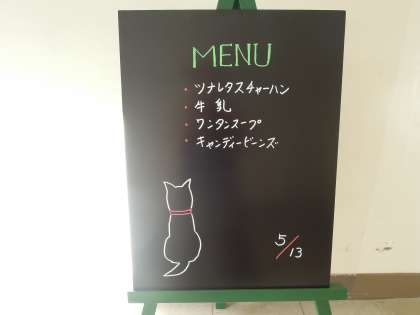 MENU
・ツナレタスチャーハン
・牛乳
・ワンタンスープ
・キャンディービーンズ
5/13